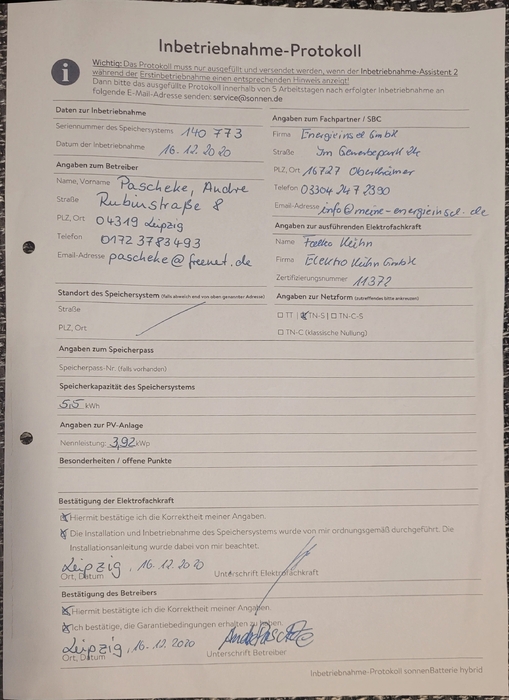 Inbetriebnahme-Protokoll
i
Wichtig: Das Protokoll muss nur ausgefüllt und versendet werden, wenn der Inbetriebnahme-Assistent 2
während der Erstinbetriebnahme einen entsprechenden Hinweis anzeigt!
Dann bitte das ausgefüllte Protokoll innerhalb von 5 Arbeitstagen nach erfolgter Inbetriebnahme an
folgende E-Mail-Adresse senden: service@sonnen.de
Daten zur Inbetriebnahme
Seriennummer des Speichersystems 140 773
Datum der Inbetriebnahme 16.12.2020
Angaben zum Betreiber
Name, Vorname Pascheke, Andre
Straße Rubinstraße 8
PLZ, Ort 04319 Leipzig
Telefon 0172 3783493
Email-Adresse pascheke@freenet.de
Angaben zum Fachpartner / SBC
Firma Energieinsel GmbH
Straße Im Gewerbepark
PLZ, Ort 16727 Oberkrämer
Telefon 03304 247 2390
Email-Adresse info@meine-energieinsel.de
Angaben zur ausführenden Elektrofachkraft
Name Kühn
Firma Elektro Kühn GmbH
Zertifizierungsnummer 11372
Standort des Speichersystem (falls abweichend von oben genannter Adresse)
Straße
PLZ, Ort
Angaben zur Netzform (zutreffendes bitte ankreuzen)
TT | TN-S | TN-C-S
TN-C (klassische Nullung)
Angaben zum Speicherpass
Speicherpass-Nr. (falls vorhanden)
Speicherkapazität des Speichersystems
5,5 kWh
Angaben zur PV-Anlage
Nennleistung: 3,92 kWp
Besonderheiten / offene Punkte
Bestätigung der Elektrofachkraft
Hiermit bestätige ich die Korrektheit meiner Angaben.
Die Installation und Inbetriebnahme des Speichersystems wurde von mir ordnungsgemäß durchgeführt. Die
Installationsanleitung wurde dabei von mir beachtet.
Leipzig, 16.12.2020
Ort, Datum Unterschrift Elektrofachkraft
Bestätigung des Betreibers
Hiermit bestätigte ich die Korrektheit meiner Angaben.
Ich bestätige, die Garantiebedingungen erhalten zu haben.
Leipzig, 16.12.2020
Ort, Datum Unterschrift Betreiber
Inbetriebnahme-Protokoll sonnenBatterie hybrid